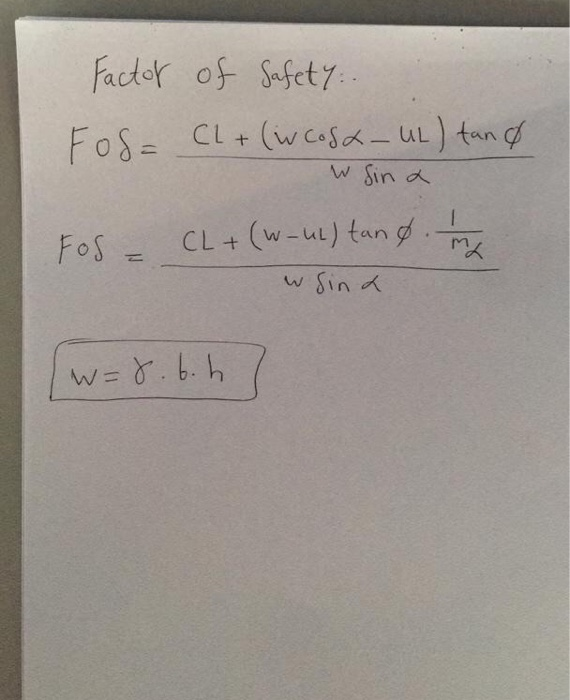 Factor of Safety:.
FOS = CL + (w cosα - UL) tan ø
w Sin α
FOS = CL + (w - uL) tan ø . 1/mα
w Sin α
w = γ . b. h